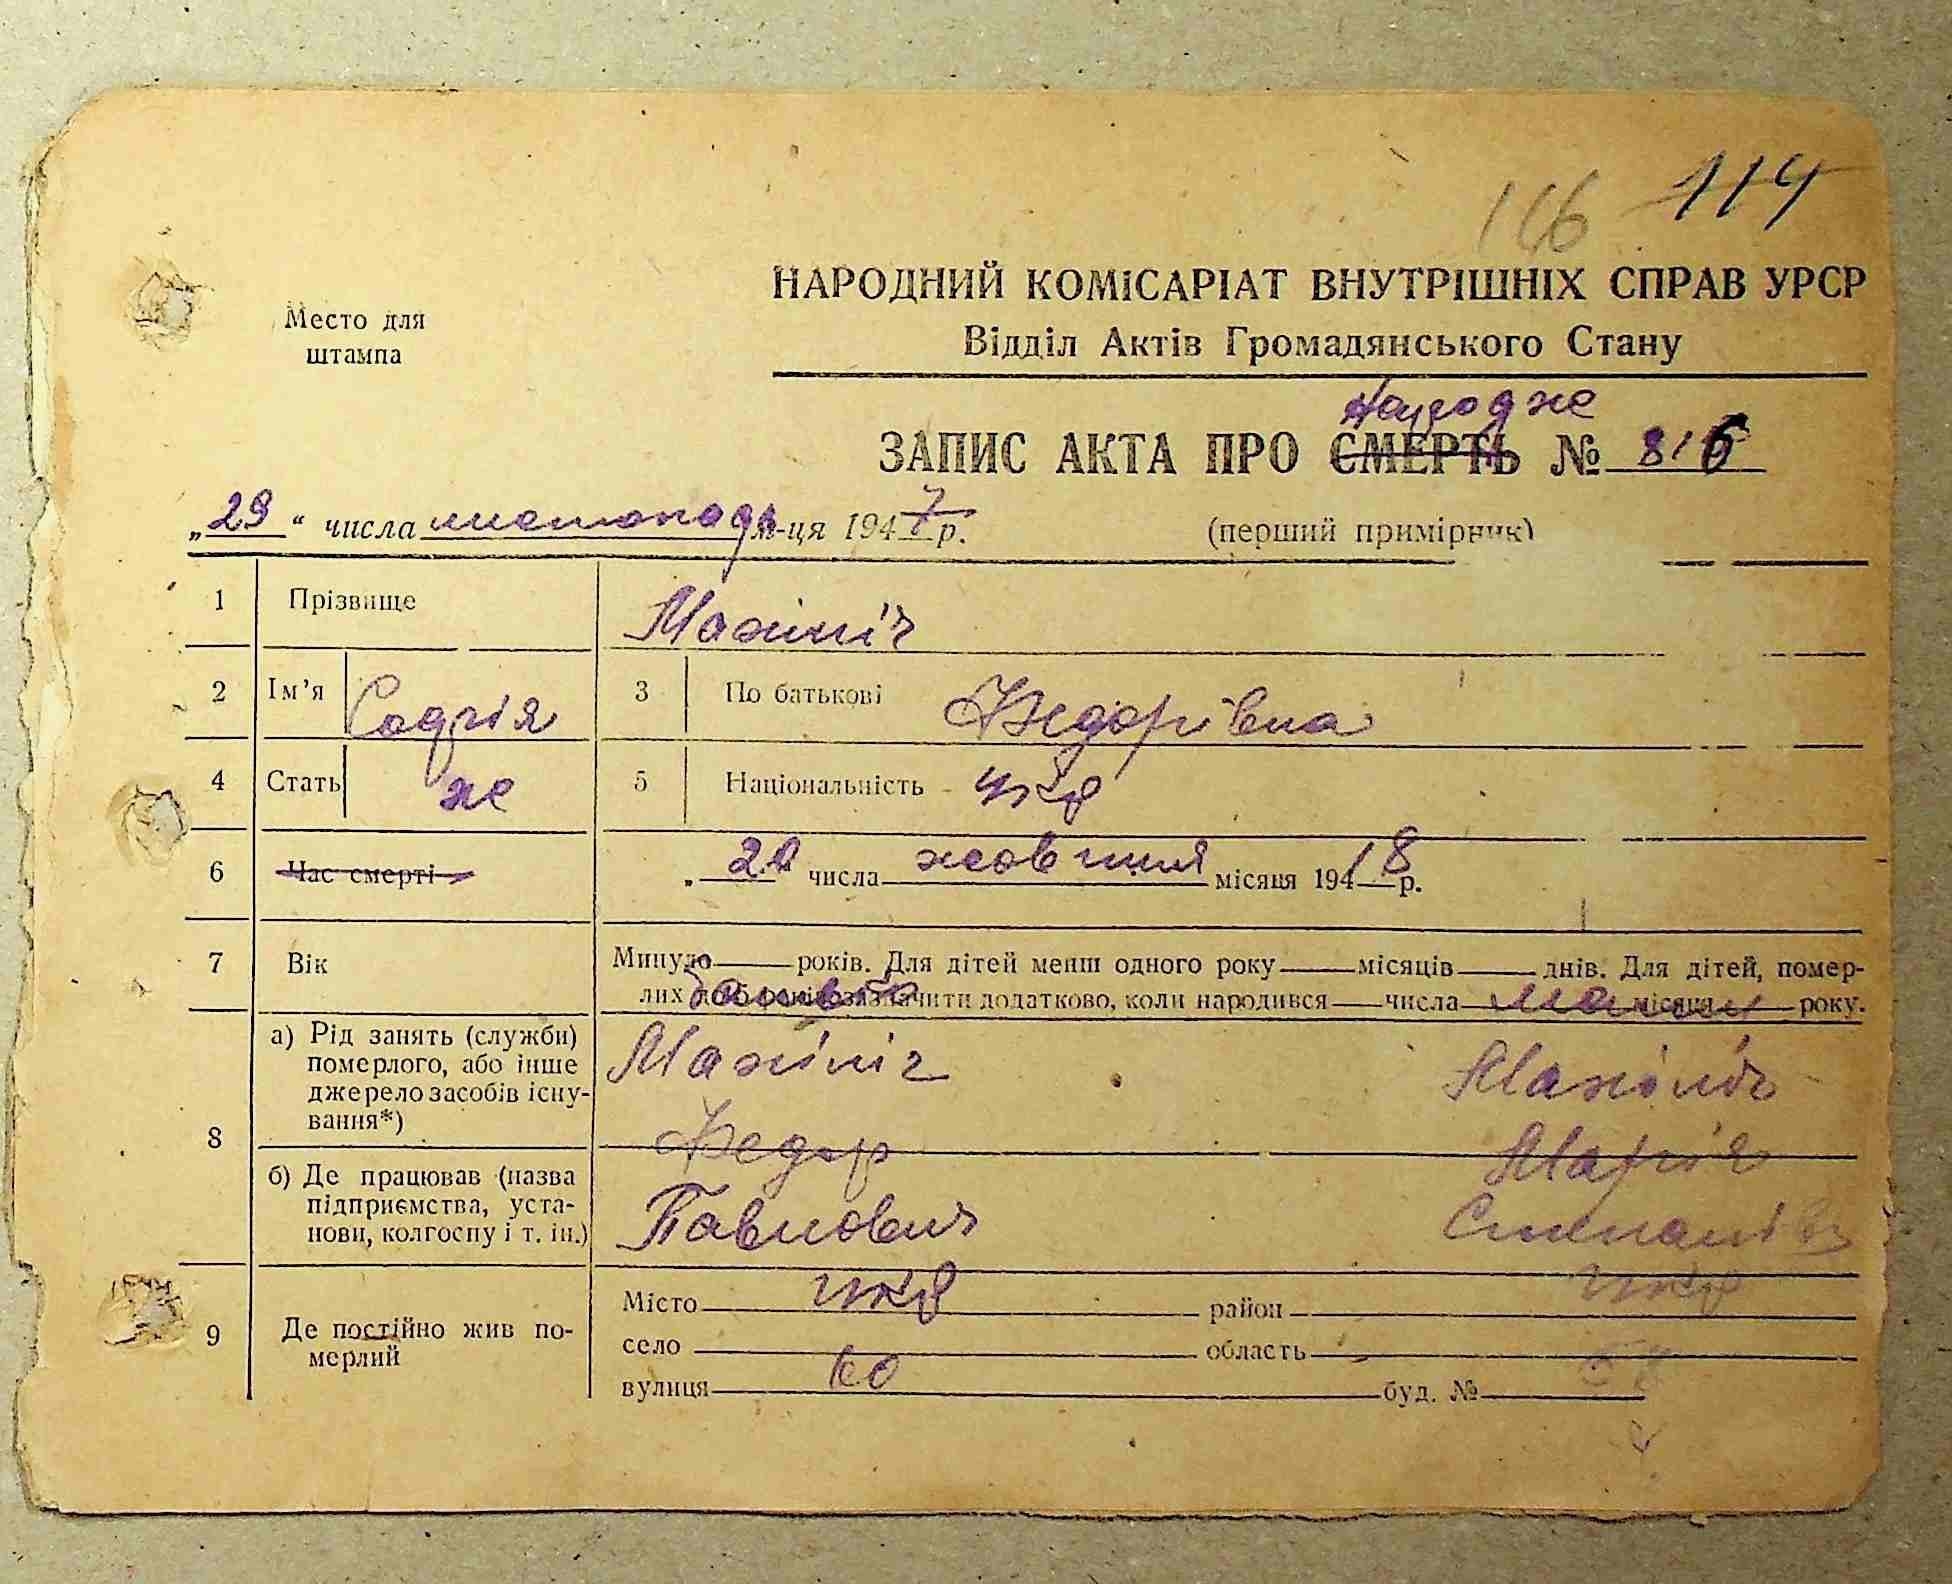 116 114
Место для
штампа
НАРОДНИЙ КОМІСАРІАТ ВНУТРІШНІХ СПРАВ УРСР
Відділ Актів Громадянського Стану
Народже
ЗАПИС АКТА ПРО СМЕРТЬ № 816
„29“ числа листопада м-ця 1947 р. (перший примірник)
1 Прізвище Махініч
2 Ім’я Софія 3 По батькові Федорівна
4 Стать ж 5 Національність укр
6 Час смерті „20 числа жовтня місяця 194 18 р.
7 Вік Минуло років. Для дітей менш одного року місяців днів. Для дітей, помер-
лих зазначити додатково, коли народився числа місяця року.
батько мати
8 а) Рід занять (служби)
померлого, або інше
джерело засобів існу-
вання*)
Махініч Махініч
Федор Марія
б) Де працював (назва
підприємства, уста-
нови, колгоспу і т. ін.)
Павлович Степанівн
9 Де постійно жив по-
мерлий
Місто укр район укр
село область
вулиця 60 буд. №